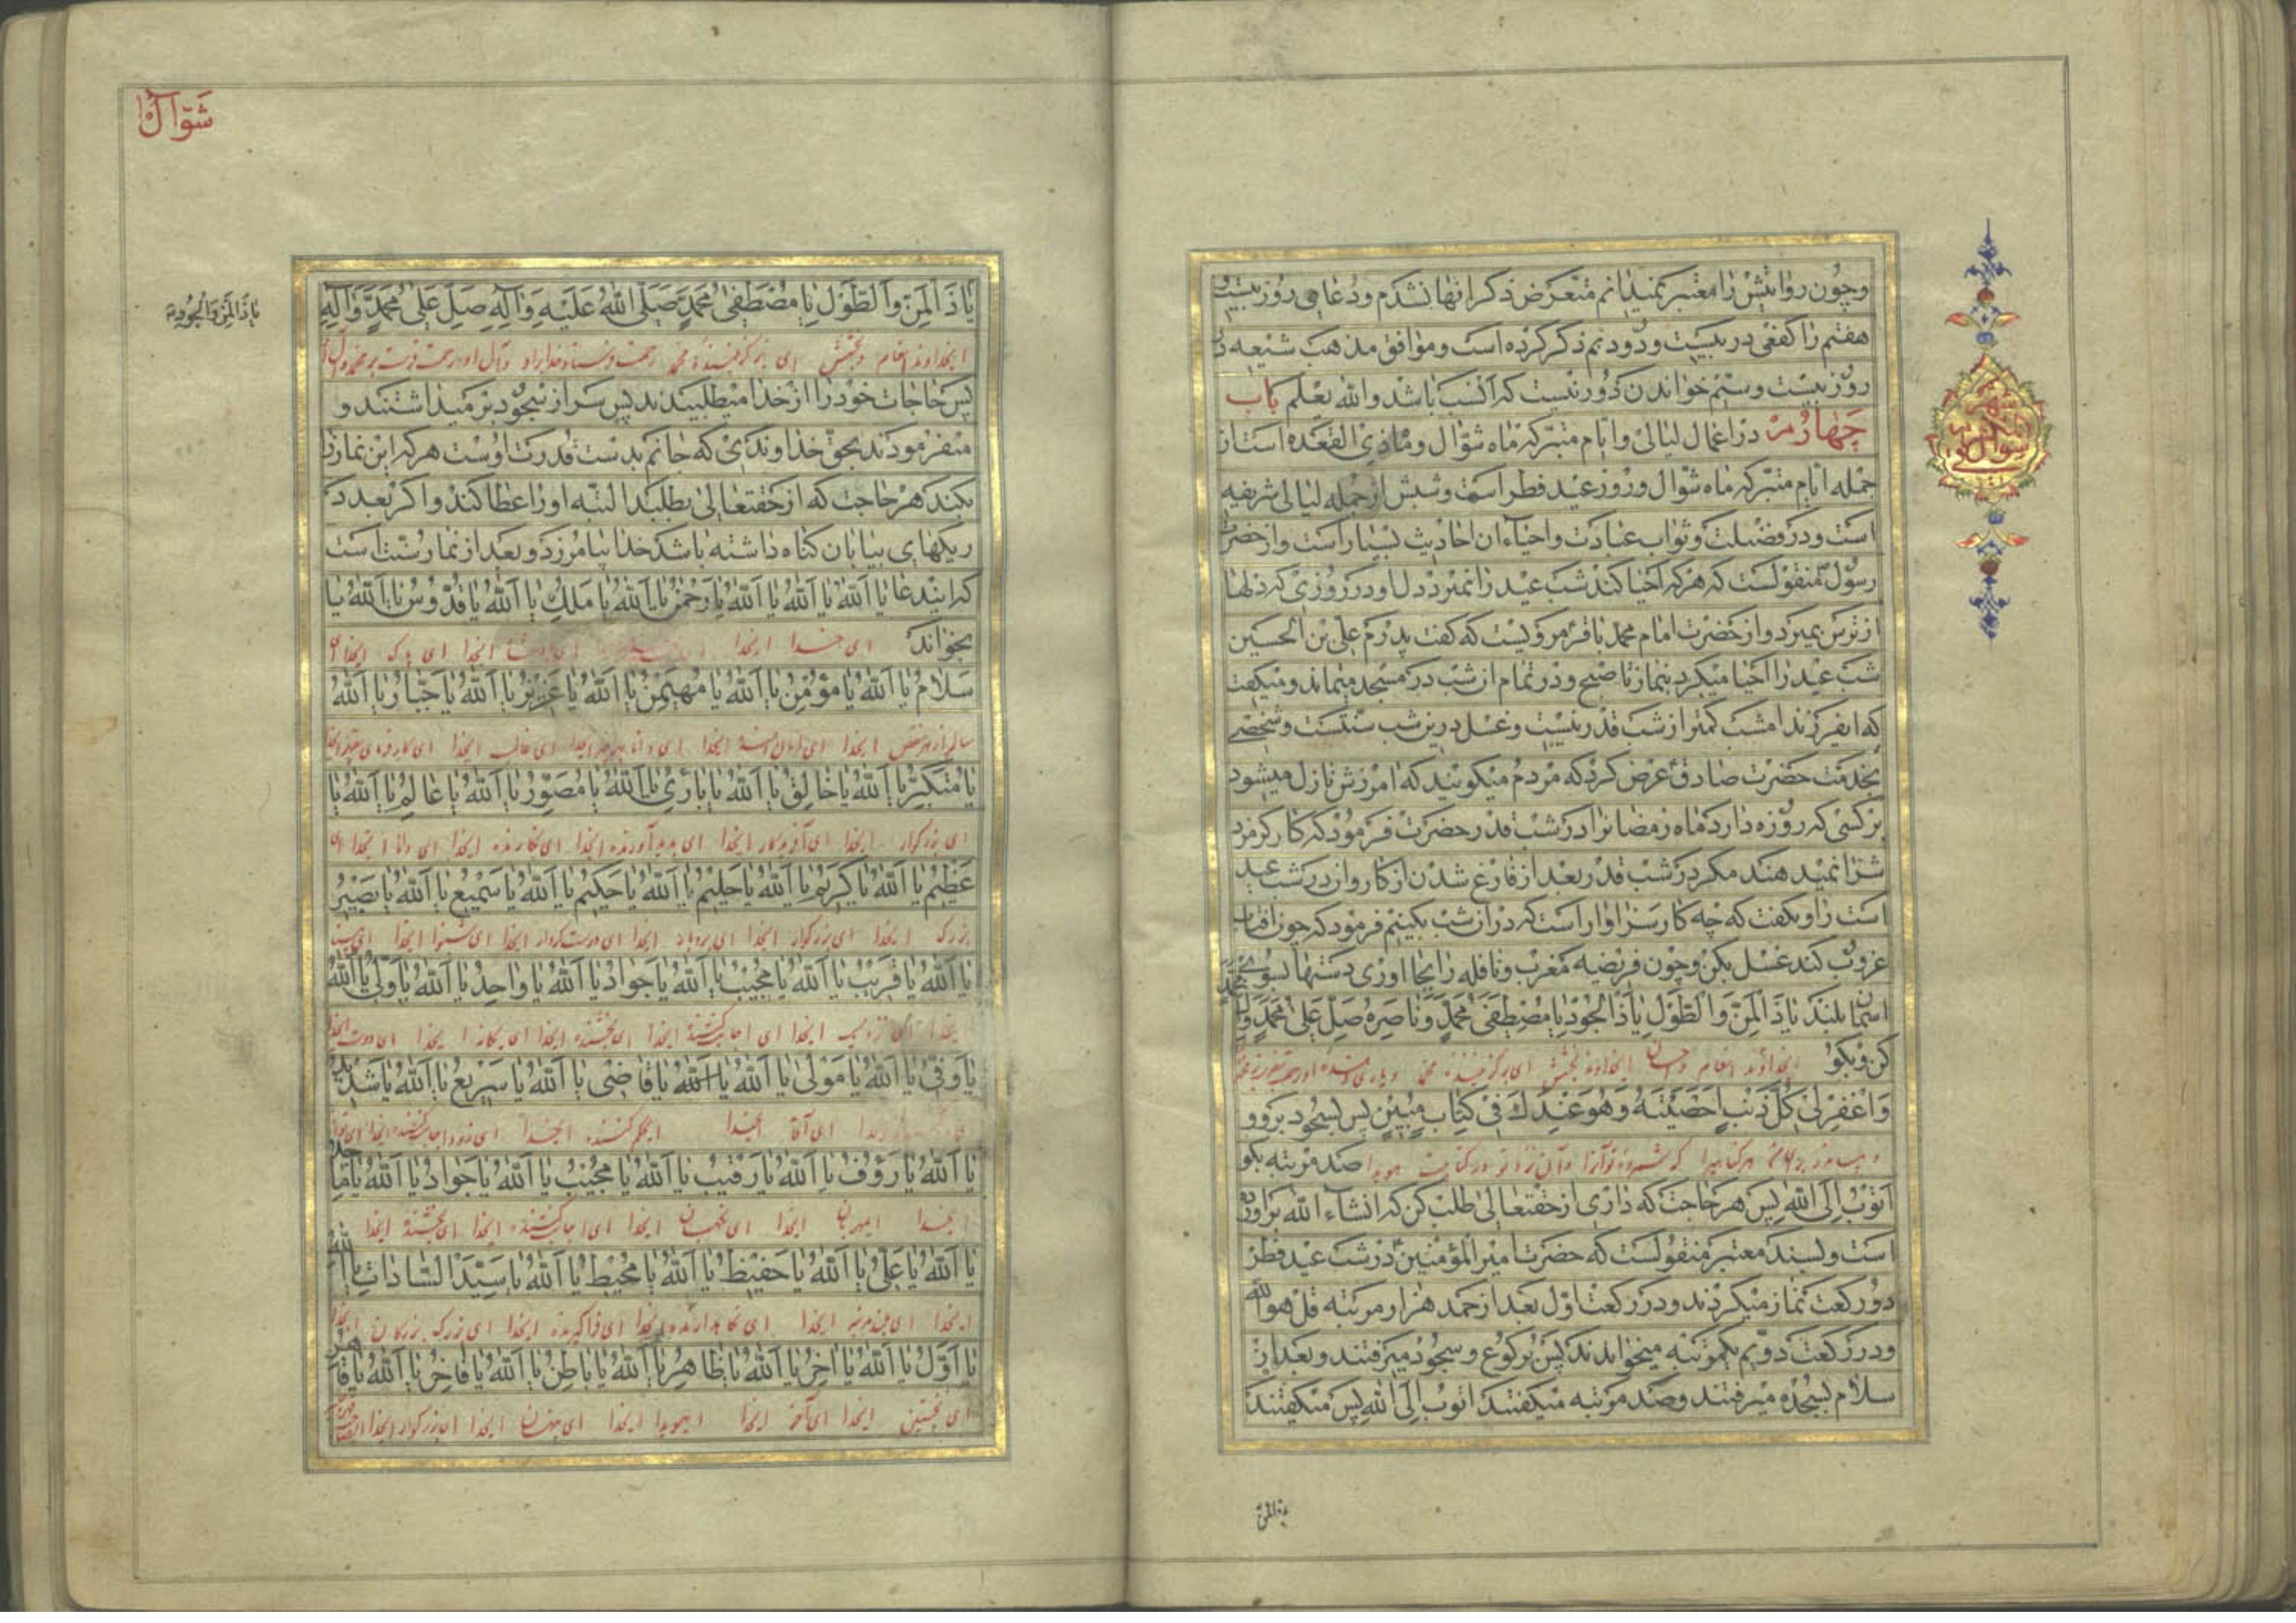 وچون روایتش را معتبر نمیدانم متعرض ذکر آنها نشدم ودعاهای روز بیست و
هفتم را کفعمی در بیست و دویم ذکر کرده است وموافق مذهب شیعه در
روز بیست وسیم خواندن دور نیست که انسب باشد والله یعلم باب
چهارم در اعمال لیالی وایام متبرکه ماه شوال وماه ذی القعده است از
جمله ایام متبرکه ماه شوال روز عید فطر است وشبش از جمله لیالی شریفه
است ودر فضیلت وثواب عبادت واحیاء آن احادیث بسیار است واز حضرت
رسول منقولست که هر که احیا کند شب عید را نمیرد دل او در روزی که دلها
از ترس بمیرد واز حضرت امام محمد باقر مرویست که گفت پدرم علی بن الحسین
شب عید را احیا میکرد بنماز تا صبح ودر تمام آن شب در مسجد میماند ومیگفت
که ای فرزند امشب کمتر از شب قدر نیست وغسل درین شب سنتست وشخصی
بخدمت حضرت صادق عرض کرد که مردم میگویند که آمرزش نازل میشود
بر کسی که روزه دارد ماه رمضان را در شب قدر حضرت فرمود که کارگر مزد
شرا نمیدهند مگر در شب قدر بعد از فارغ شدن از کار وآن در شب عید
است راوی گفت که چه کار سزاوار است که در آن شب بکنیم فرمود که چون آفتاب
غروب کند غسل بکن وچون فریضه مغرب ونافله را بجا آوری دستها بسوی
آسمان بلند یا ذا المن والطول یا ذا الجود یا مصطفی محمد وناصره صل علی محمد وآل محمد
کن وبگو ایخداوند انعام واحسان ایخداوند بخشش ای برگزیننده محمد ویاری کننده او
واغفر لی کل ذنب احصیته وهو عندک فی کتاب مبین پس بسجود برو و
هر گناهیرا که شمرده تو آنرا وآن نزد تو در کتابیست هویدا صد مرتبه بگو
اتوب الی الله پس هر حاجت که داری از حقتعالی طلب کن که انشاء الله براورده
است وبسند معتبر منقولست که حضرت امیر المؤمنین در شب عید فطر
دو رکعت نماز میکردند ودر رکعت اول بعد از حمد هزار مرتبه قل هو الله
ودر رکعت دویم یکمرتبه میخواندند پس برکوع وسجود میرفتند وبعد از
سلام بسجده میرفتند وصد مرتبه میگفتند اتوب الی الله پس میگفتند
یا ذا المن
شوال
یا ذا المن والجود
یا ذا المن والطول یا مصطفی محمد صلی الله علیه وآله صل علی محمد وآله
ایخداوند انعام وبخشش ای برگزیننده محمد رحمت
پس حاجات خود را از خدا میطلبیدند پس سر از سجود بر میداشتند و
میفرمودند بحق خداوندی که جانم بدست قدرت اوست هر که این نماز را
بکند هر حاجت که از حقتعالی بطلبد البته او را عطا کند واگر بعدد
ریگهای بیابان گناه داشته باشد خدا بیامرزد وبعد از نماز سنت است
که این دعا یا الله یا الله یا الله یا رحمن یا الله یا ملک یا الله یا قدوس یا الله یا
بخواند ای خدا ایخدا ایخدا ای پاک ایخدا
سلام یا الله یا مؤمن یا الله یا مهیمن یا الله یا عزیز یا الله یا جبار یا الله
سالم از هر نقص ایخدا ایخدا ایخدا ای غالب ایخدا
یا متکبر یا الله یا خالق یا الله یا بارئ یا الله یا مصور یا الله یا عالم یا الله یا
ای بزرگوار ایخدا ای آفریدگار ایخدا ای پدیدآورنده ایخدا ای نگارنده ایخدا ای دانا ایخدا ای
عظیم یا الله یا کریم یا الله یا حلیم یا الله یا حکیم یا الله یا سمیع یا الله یا بصیر
بزرگ ایخدا ای بزرگوار ایخدا ای بردبار ایخدا ای درست کردار ایخدا ای شنوا ایخدا
یا الله یا قریب یا الله یا مجیب یا الله یا جواد یا الله یا واحد یا الله یا ولی یا الله
ایخدا ای نزدیک ایخدا ای اجابت کننده ایخدا ای بخشنده ایخدا ای یگانه ایخدا ای دوست ایخدا
یا وفی یا الله یا مولی یا الله یا قاضی یا الله یا سریع یا الله یا شدید
ایخدا ای آقا ایخدا ای حکم کننده ایخدا
یا الله یا رؤف یا الله یا رقیب یا الله یا مجیب یا الله یا جواد یا الله یا ماجد
ایخدا ای مهربان ایخدا ای نگهبان ایخدا ای اجابت کننده ایخدا ای بخشنده ایخدا
یا الله یا علی یا الله یا حفیظ یا الله یا محیط یا الله یا سید السادات یا الله
ایخدا ای بلند مرتبه ایخدا ای نگاهدارنده ایخدا ای فراگیرنده ایخدا ای بزرگ بزرگان ایخدا
یا اول یا الله یا آخر یا الله یا ظاهر یا الله یا باطن یا الله یا فاخر یا الله یا قاهر
ای نخستین ایخدا ای آخر ایخدا ای هویدا ایخدا ای پنهان ایخدا ای بزرگوار ایخدا